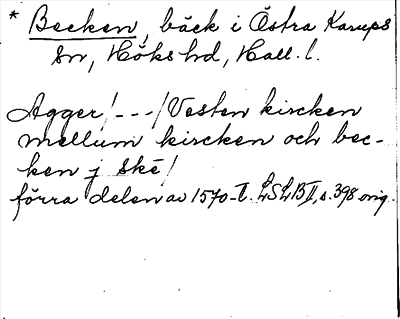 * Becken, bäck i Östra Karups
sn, Höks hd, Hall. l.
Agger/---/Vesten kircken
mellum kircken och bec-
ken j Skë/
förra delen av 1570-t. LSLB II, s. 398 orig.